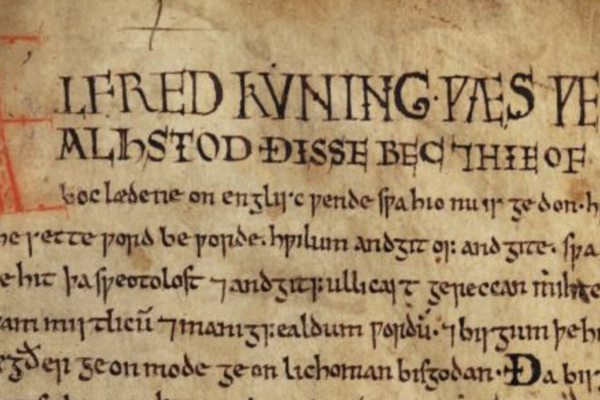 ÆLFRED KUNING· ǷÆS ǷE
ALHSTOD ÐISSE BEC ⁊HIE OF
boc lædene on englisc ƿende sƿa hio nu is ge don· h
he sette ƿord be ƿorde· hƿilum andgit of andgite· sƿa
e hit þa sƿeotolost ⁊ andgitfullicast gereccan mihte
am mistlicū ⁊ manigfealdum ƿordū· ⁊ bisgum þe h
ge on mode ge on lichoman bisgodan· Ða bis